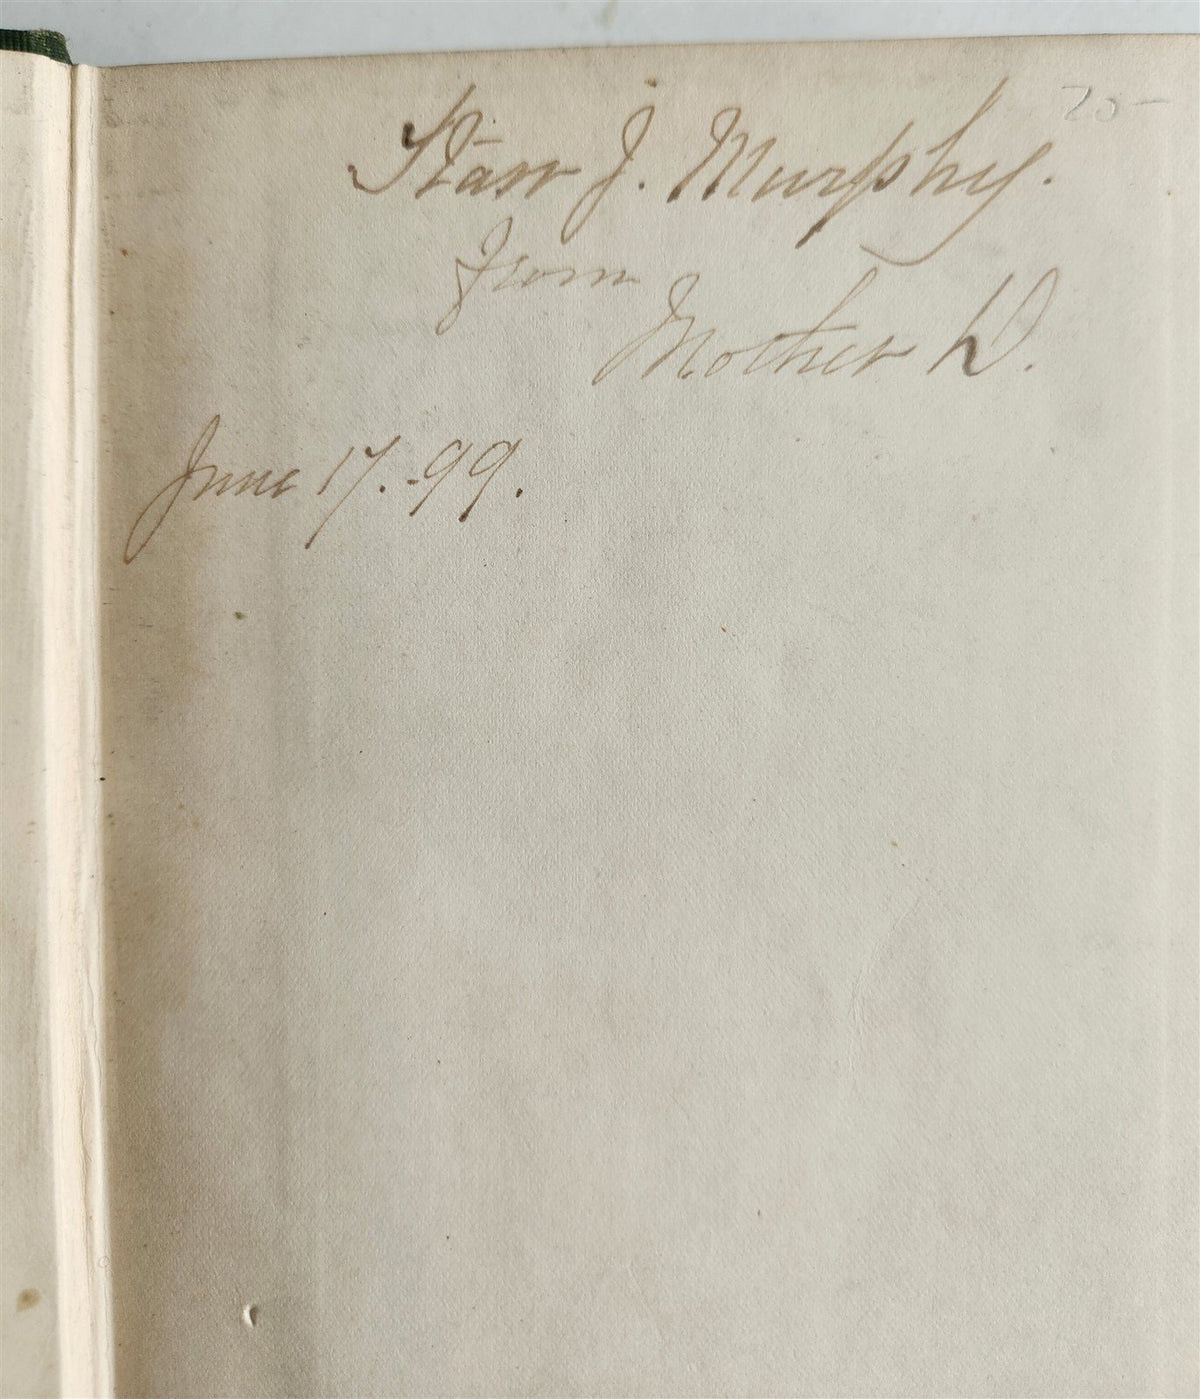 20-
Starr J. Murphy.
from
Mother D.
June 17. -99.